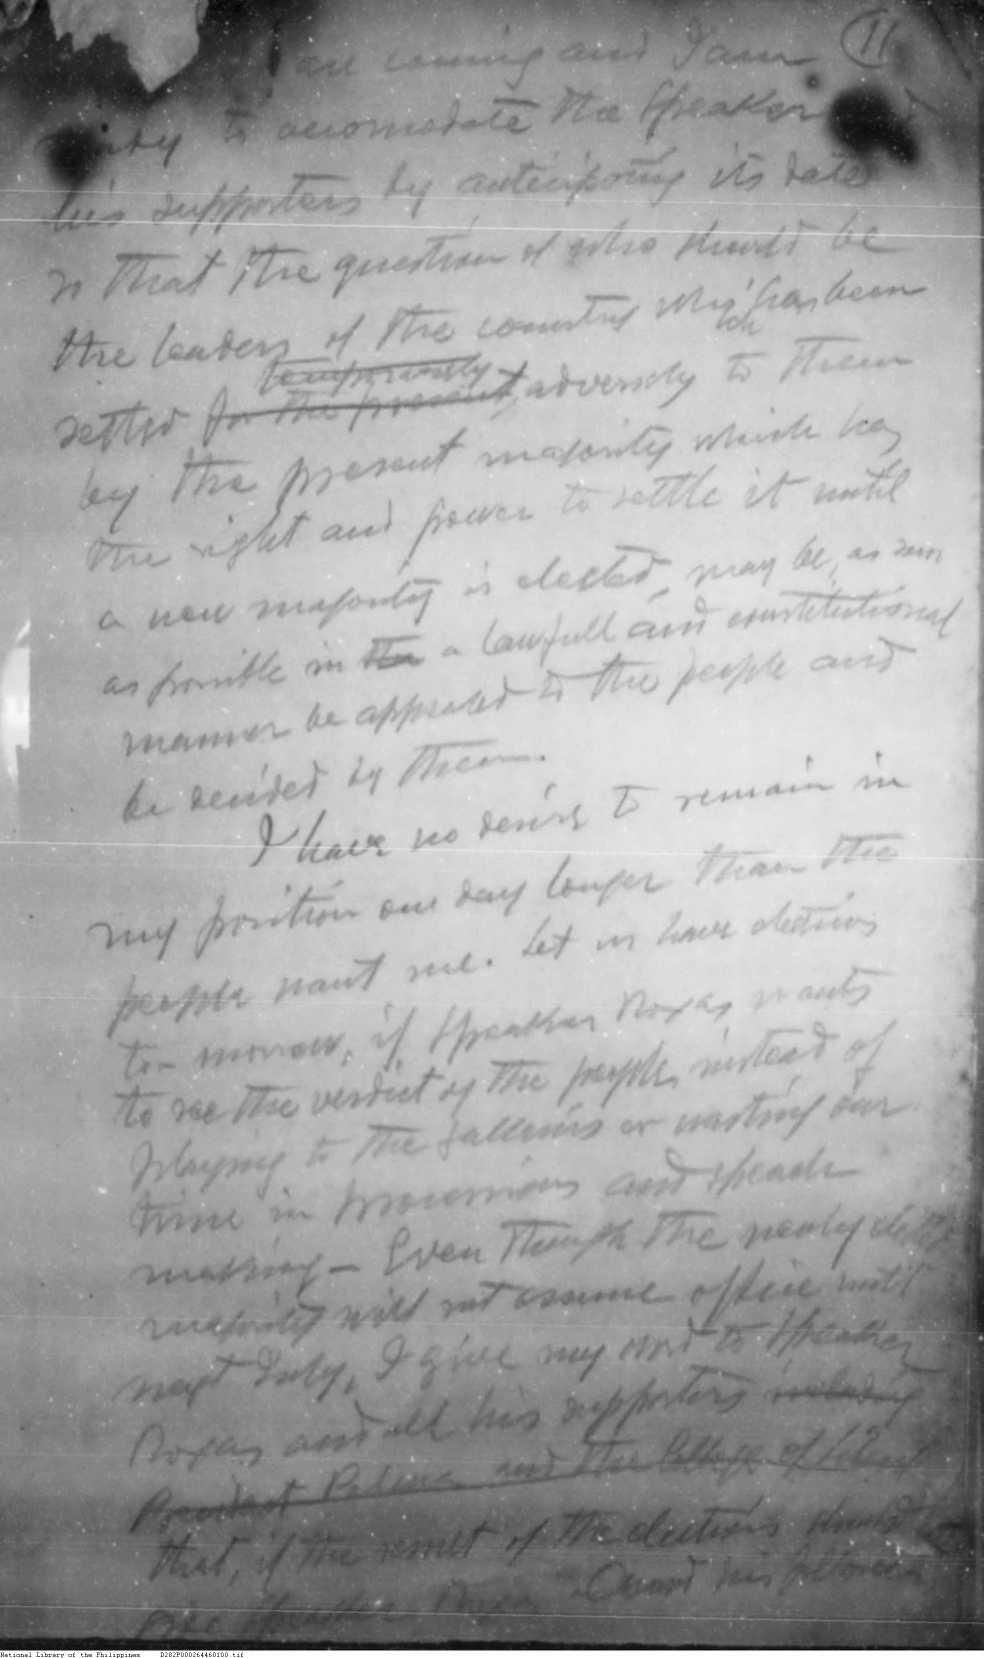 11
are coming and I am
ready to accomodate the Speaker
his supporters by anticipating its date
so that the question of who should be
the leaders of the country which has been
temporarily
settled for the present, adversely to them
by the present majority which has
the right and power to settle it until
a new majority is elected, may be, as soon
as possible in the a lawfull and constitutional
manner be appealed to the people and
be decided by them.
I have no desire to remain in
my position one day longer than the
people want me. Let us have elections
to-morrow, if Speaker Roxas wants
to see the verdict of the people, instead of
playing to the galleries or wasting our
time in processions and speech
making - Even though the newly elected
majority will not assume office until
next July, I give my word to Speaker
Roxas and all his supporters including
President Palma and the College of
that, if the result of the elections should
Speaker Roxas and his followers
National Library of the Philippines D282P000264460100.tif